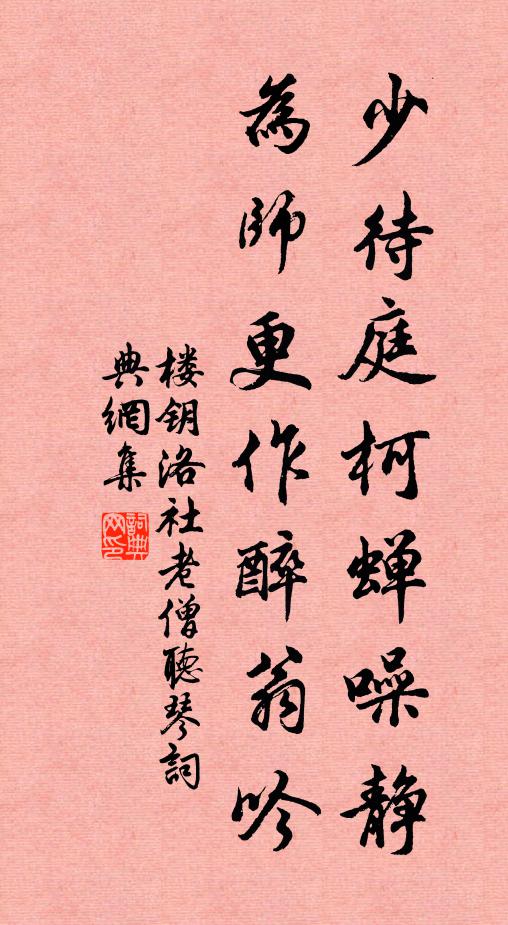 少待庭柯蝉噪静
為師更作醉翁吟
楼钥洛社老僧聽琴詞
典網集
詞典
网印